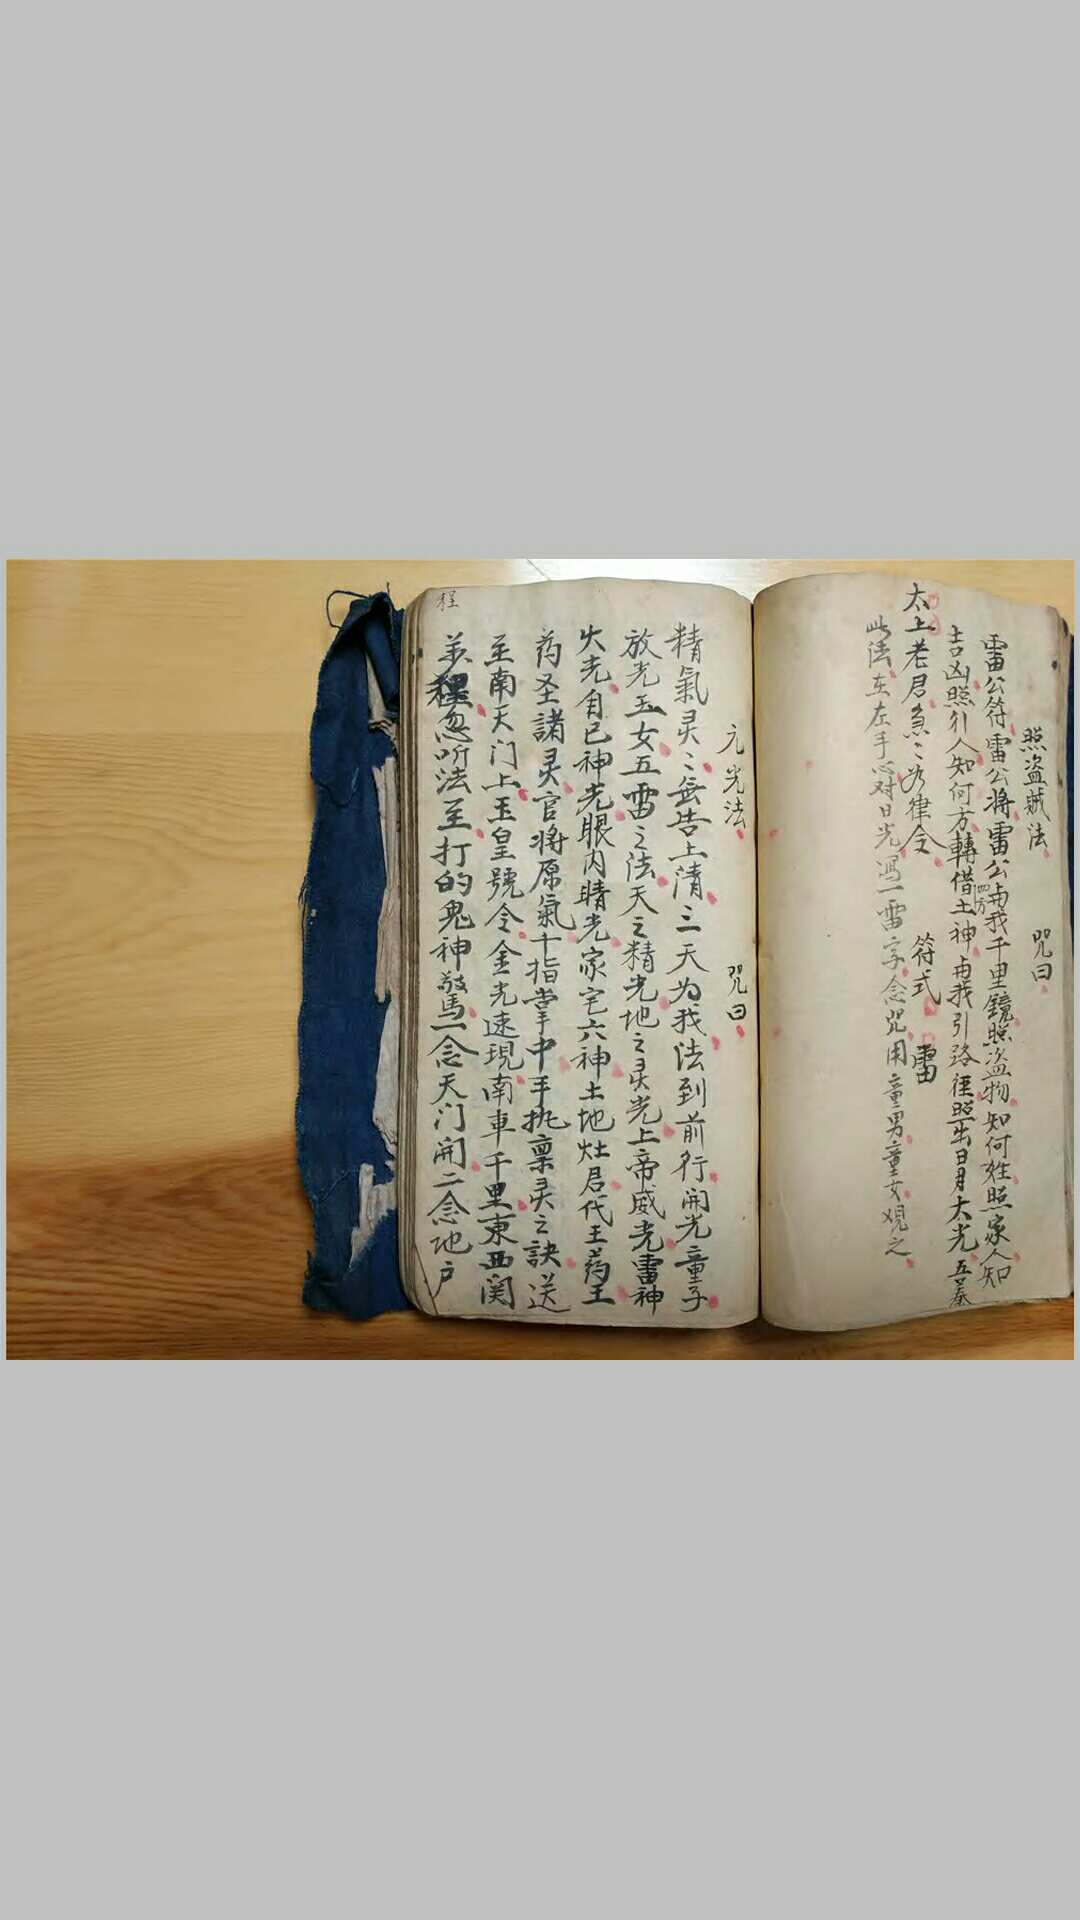 照盗贼法 咒曰
雷公符雷公将雷公与我千里鏡照盗物知何姓照家人知
吉凶照引人知何方轉借土神与我引路徃照出日月太光五
四方
太上老君急〻如律令 符式 雷
此法在左手心对日光写一雷字念咒用童男童女覌之
元光法 咒曰
精氣灵〻無告上清三天为我法到前行開光童子
放光玉女五雷之法天之精光地之灵光上帝威光雷神
火光自己神光眼内睛光家宅六神土地灶君代王药王
药圣諸灵官将原氣十指掌中手执禀灵之訣送
至南天门上玉皇號令金光速現南車千里東西関
忽听法至打的鬼神驚一念天门開二念地户
程